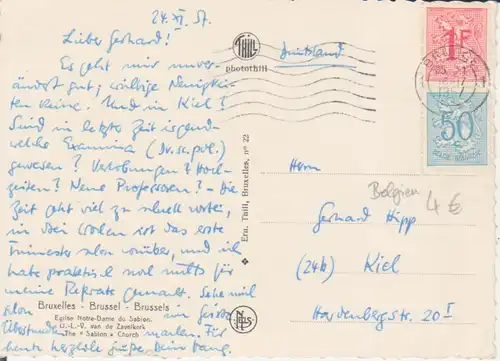 24. XI. 57.
Lieber Gerhard!
Es geht mir unver-
ändert gut; wichtige Neuigkei-
ten keine. Und in Kiel?
Sind in letzter Zeit irgend-
welche Examina (Dr. sc. pol.)
gewesen? Verlobungen? Hoch-
zeiten? Neue Professoren? - Die
Zeit geht viel zu schnell weiter,
in drei Wochen ist das erste
Trimester schon vorüber, und ich
habe praktisch noch nichts für
meine Referate gemacht. Sehe mich
schon im Januar
Überstunden machen. Für
heute herzliche Grüße, Dein
Bruxelles - Brussel - Brussels
Eglise Notre-Dame du Sablon.
O.-L.-V. van de Zavelkerk
The « Sablon » Church
THILL
photothill
Ern. Thill, Bruxelles, nº 22
NELS
Deutschland
1F
50
Herrn
Belgien 4 €
Gerhard Hipp
(24b) Kiel
Hardenbergstr. 20 I